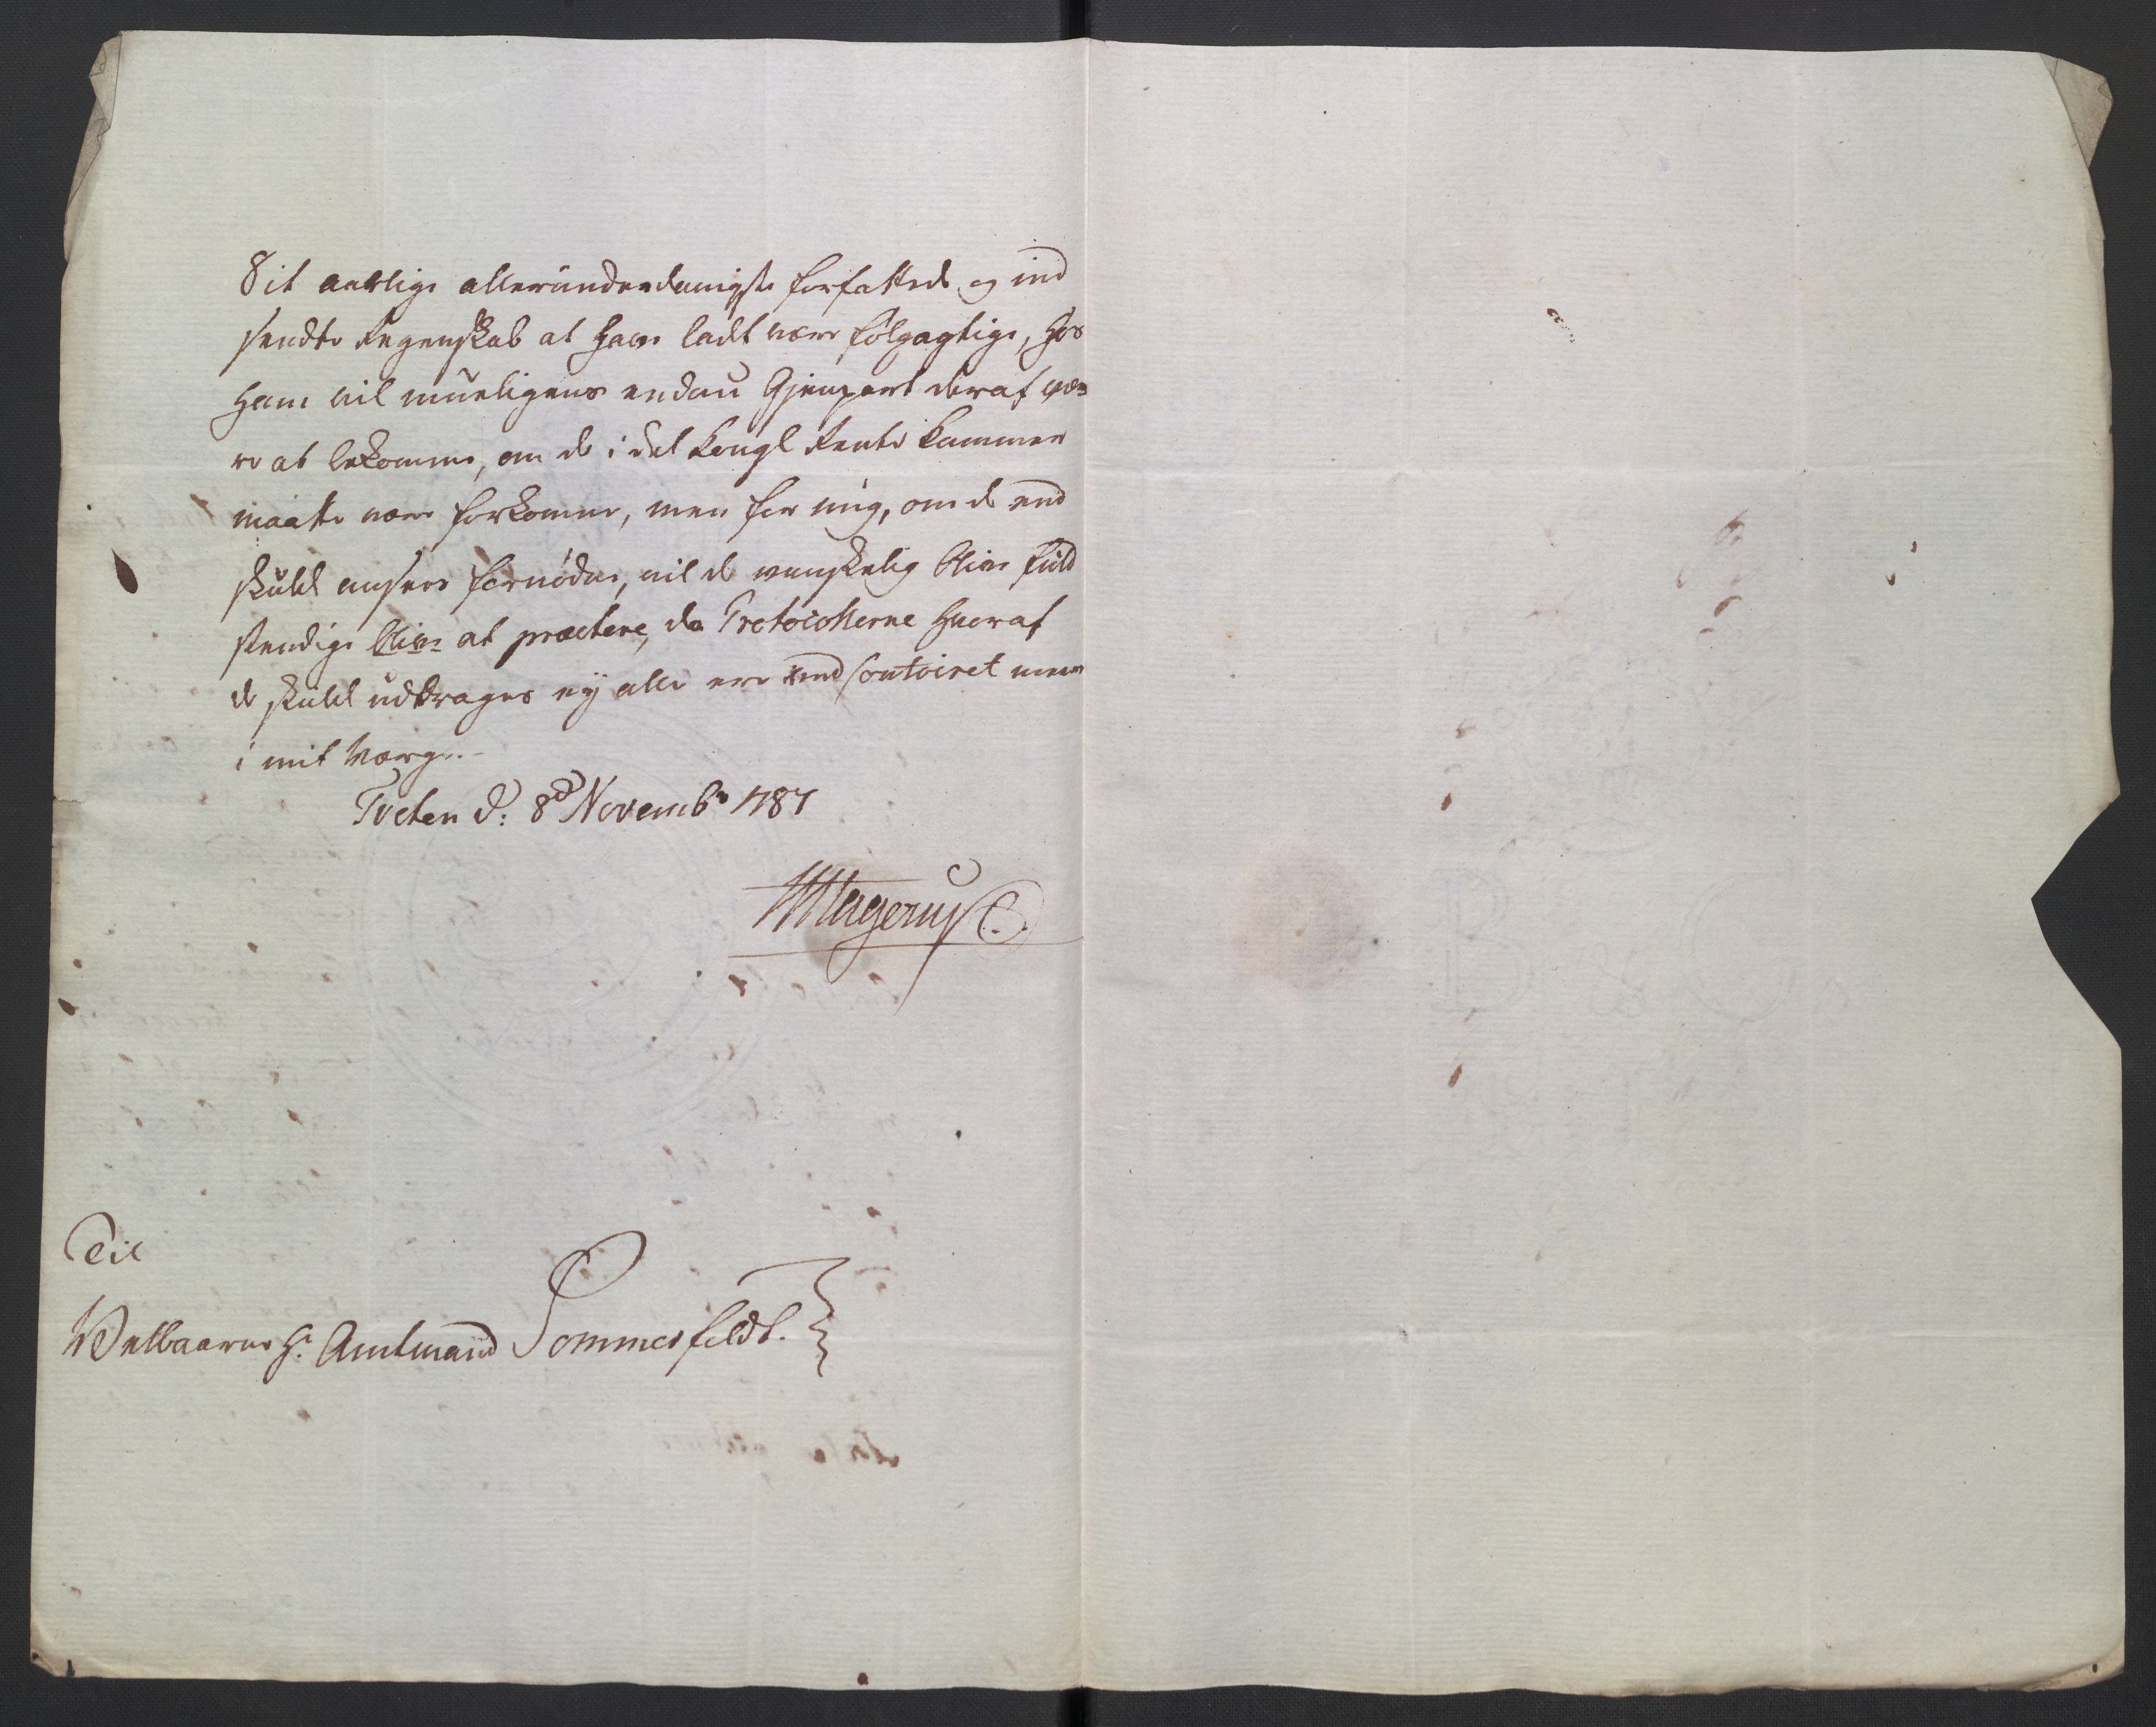 Sit aarlige allerunderdanigste forfattede og ind
sendte Regenskab at have ladt være følgagtige, hos
ham vil mueligens endnu Gjenpart deraf væ=
re at bekomme, om de i det Kongl Rente Kammer
maatte være forkomne, men for mig, om de end
skulde ansees fornødne, vil de vanskelig blive fuld
stendige blive at præstere, da Protocollerne hvoraf
de skulde uddrages ey alle ere ved Contoiret mere
i mit Værge.-
Tveten d: 8de Novembr 1787
MMagerup
Til
Velbaarne Hr. Amtmand Sommerfeldt.